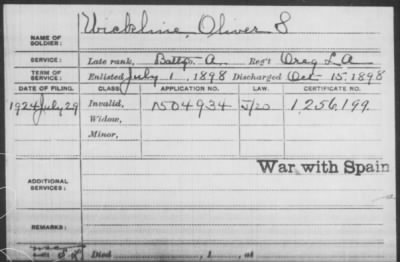 NAME OF SOLDIER: Wickline, Oliver S
SERVICE: Late rank, Batty A Reg't Oreg L A
TERM OF SERVICE: Enlisted July 1, 1898 Discharged Oct 15, 1898
DATE OF FILING. CLASS. APPLICATION NO. LAW. CERTIFICATE NO.
1924 July 29 Invalid, 1504934 J/20 1,256,199.
Widow,
Minor,
War with Spain
ADDITIONAL SERVICES:
REMARKS:
Died , 1 , at